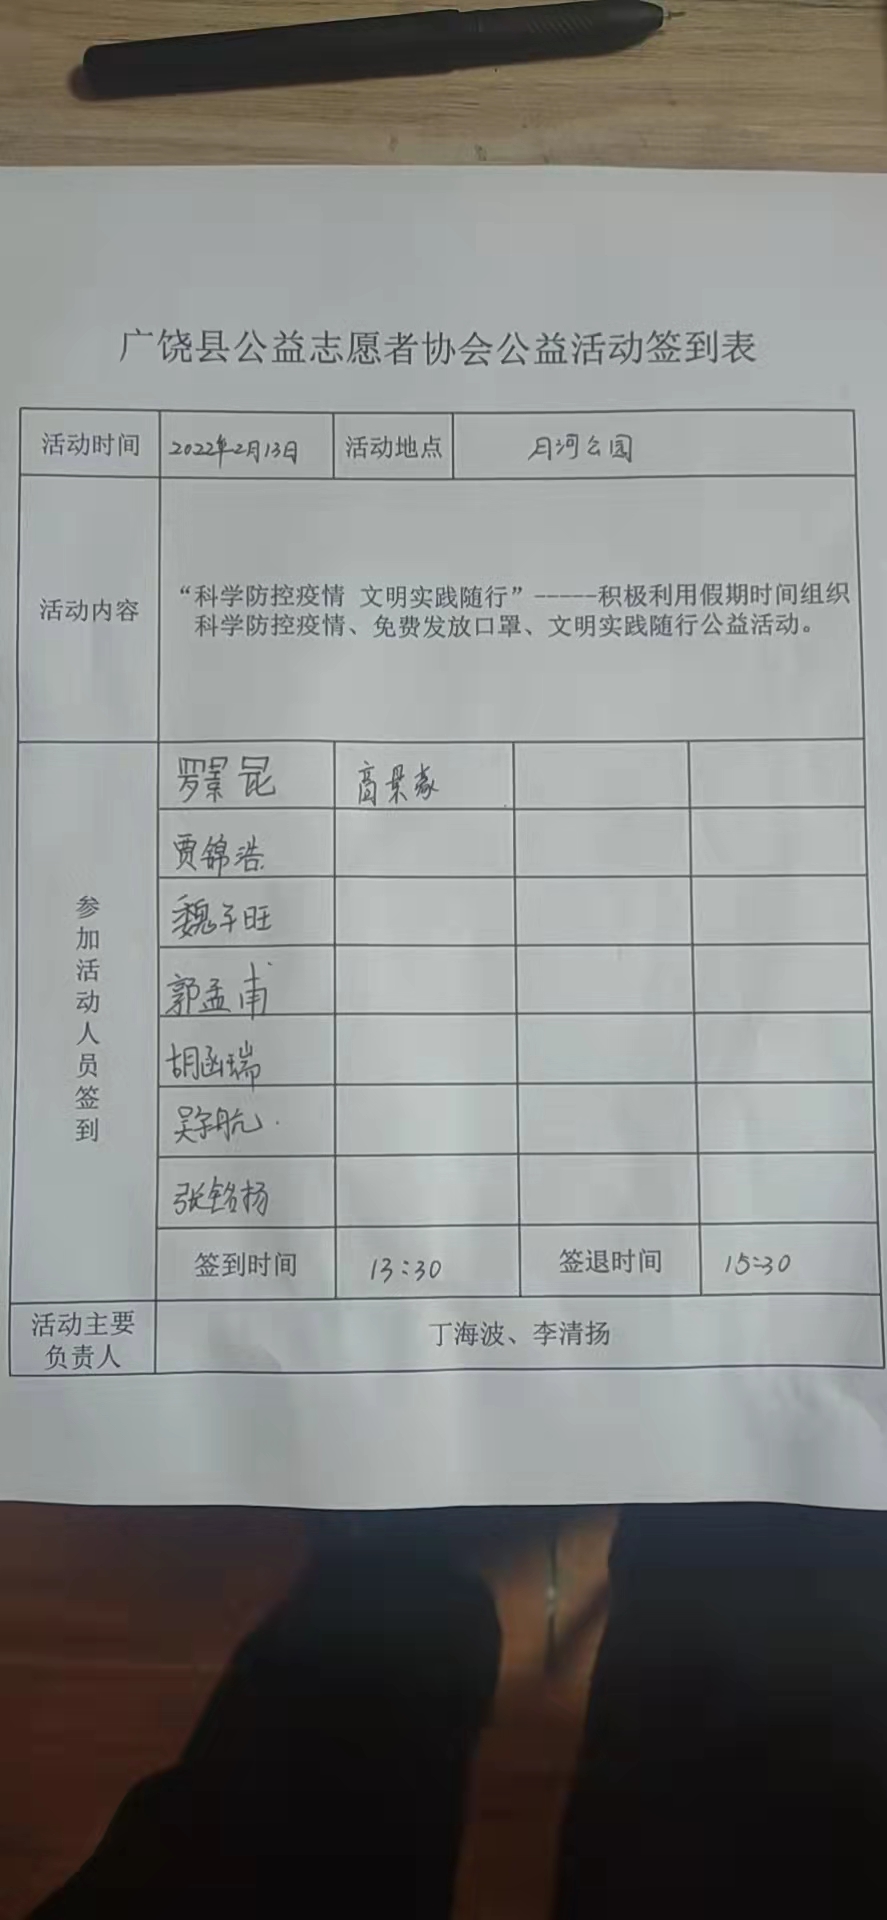 广饶县公益志愿者协会公益活动签到表
活动时间 2022年2月13日 活动地点 月河公园
活动内容
“科学防控疫情 文明实践随行”-----积极利用假期时间组织
科学防控疫情、免费发放口罩、文明实践随行公益活动。
参加活动人员签到
罗景昆 高景
贾锦浩
魏子旺
郭孟甫
胡函瑞
吴宇航
张铭扬
签到时间 13:30 签退时间 15:30
活动主要
负责人
丁海波、李清扬